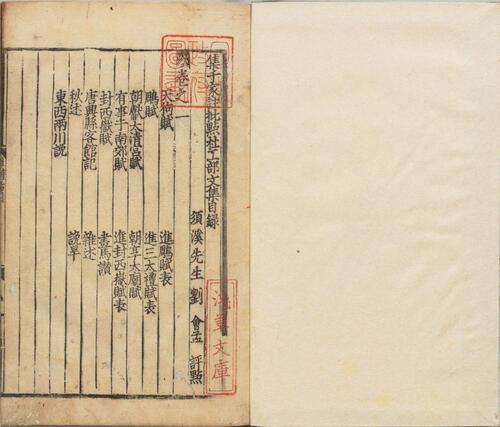 集千家註批點杜工部文集目錄
須溪先生劉 會孟 評點
卷之一
天狗賦 進鵰賦表
鵰賦 進三大禮賦表
朝獻太清宮賦 朝享太廟賦
有事于南郊賦 進封西嶽賦表
封西嶽賦 畫馬讚
唐興縣客館記 雜述
秋述 說旱
東西兩川說
淺草文庫